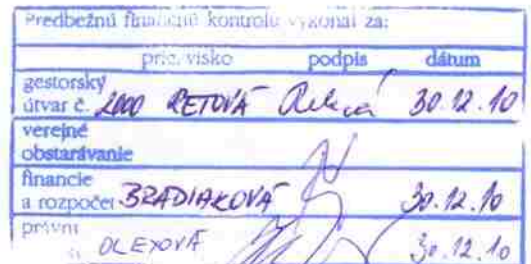 Predbežnú finančnú kontrolu vykonal za:
priezvisko podpis dátum
gestorský
útvar č. 2000 RETOVÁ Retová 30.12.10
verejné
obstarávanie
financie
a rozpočet BRADIAKOVÁ 30.12.10
právni
OLEXOVÁ 30.12.10